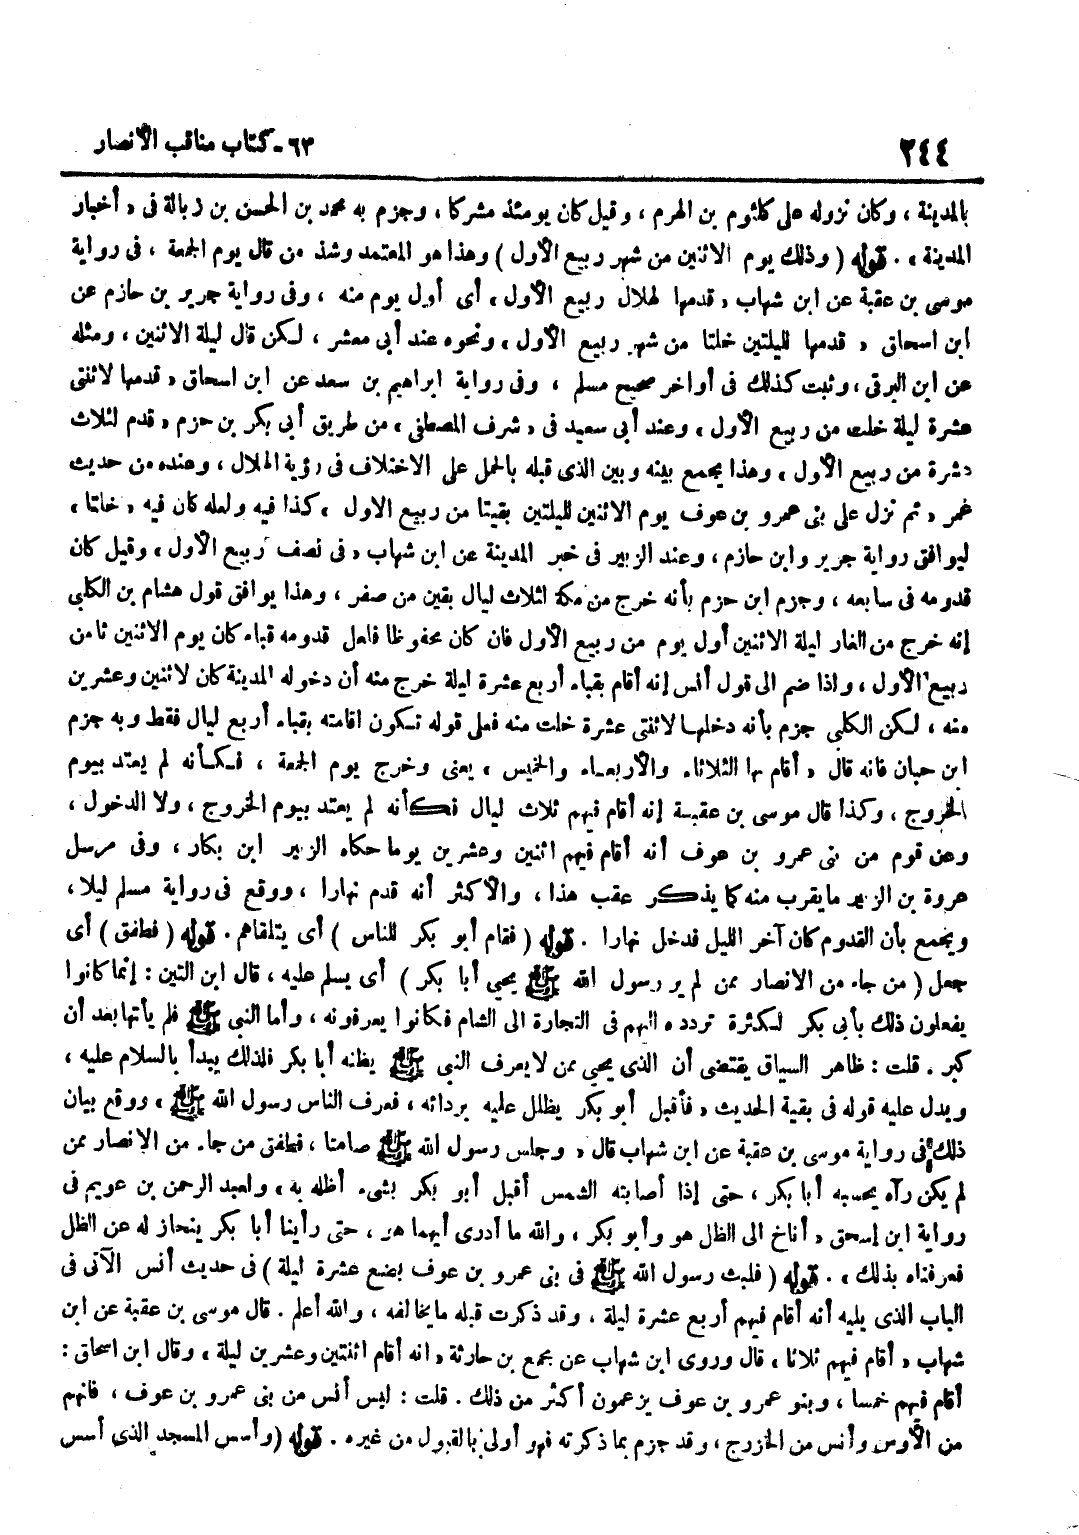 ٢٤٤ ٦٣ - كتاب مناقب الأنصار
بالمدينة ، وكان نزوله على كلثوم بن الهرم ، وقيل كان يومئذ مشركا ، وجزم به محمد بن الحسن بن زبالة فى « أخبار
المدينة » . قوله ( وذلك يوم الاثنين من شهر ربيع الأول ) وهذا هو المعتمد وشذ من قال يوم الجمعة ، فى رواية
موسى بن عقبة عن ابن شهاب « قدمها لهلال ربيع الأول » أى أول يوم منه ، وفى رواية جرير بن حازم عن
ابن اسحاق « قدمها لليلتين خلتا من شهر ربيع الأول » ونحوه عند أبى معشر ، لكن قال ليلة الاثنين ، ومثله
عن ابن البرقى ، وثبت كذلك فى أواخر صحيح مسلم ، وفى رواية ابراهيم بن سعد عن ابن اسحاق « قدمها لاثنتى
عشرة ليلة خلت من ربيع الأول » وعند أبى سعيد فى « شرف المصطفى » من طريق أبى بكر بن حزم « قدم لثلاث
عشرة من ربيع الأول » وهذا يجمع بينه وبين الذى قبله بالحمل على الاختلاف فى رؤية الهلال ، وعنده من حديث
عمر « ثم نزل على بنى عمرو بن عوف يوم الاثنين لليلتين بقيتا من ربيع الاول » كذا فيه ولعله كان فيه « خلتا »
ليوافق رواية جرير وابن حازم ، وعند الزبير فى خبر المدينة عن ابن شهاب « فى نصف ربيع الأول » وقيل كان
قدومه فى سابعه ، وجزم ابن حزم بأنه خرج من مكة لثلاث ليال بقين من صفر ، وهذا يوافق قول هشام بن الكلبى
إنه خرج من الغار ليلة الاثنين أول يوم من ربيع الأول فان كان محفوظا فلعل قدومه قباء كان يوم الاثنين ثامن
ربيع الأول ، واذا ضم الى قول أنس إنه أقام بقباء أربع عشرة ليلة خرج منه أن دخوله المدينة كان لاثنين وعشرين
منه ، لكن الكلبى جزم بأنه دخلها لاثنتى عشرة خلت منه فعلى قوله تكون اقامته بقباء أربع ليال فقط وبه جزم
ابن حبان فانه قال « أقام بها الثلاثاء والأربعاء والخميس » يعنى وخرج يوم الجمعة ، فكأنه لم يعتد بيوم
الخروج ، وكذا قال موسى بن عقبة إنه أقام فيهم ثلاث ليال فكأنه لم يعتد بيوم الخروج ، ولا الدخول ،
وعن قوم من بنى عمرو بن عوف أنه أقام فيهم اثنين وعشرين يوما حكاه الزبير ابن بكار ، وفى مرسل
عروة بن الزبير ما يقرب منه كما يذكر عقب هذا ، والأكثر أنه قدم نهارا ، ووقع فى رواية مسلم ليلا ،
ويجمع بأن القدوم كان آخر الليل فدخل نهارا . قوله ( فقام أبو بكر للناس ) أى يتلقاهم . قوله ( فطفق ) أى
جعل ( من جاء من الانصار ممن لم ير رسول الله ﷺ يحيى أبا بكر ) أى يسلم عليه ، قال ابن التين : إنما كانوا
يفعلون ذلك بأبى بكر لكثرة تردده اليهم فى التجارة الى الشام فكانوا يعرفونه ، وأما النبى ﷺ فلم يأتها بعد أن
كبر . قلت : ظاهر السياق يقتضى أن الذى يحيى ممن لا يعرف النبى ﷺ يظنه أبا بكر فلذلك يبدأ بالسلام عليه ،
ويدل عليه قوله فى بقية الحديث « فأقبل أبو بكر يظلل عليه بردائه ، فعرف الناس رسول الله ﷺ » ووقع بيان
ذلك فى رواية موسى بن عقبة عن ابن شهاب قال « وجلس رسول الله ﷺ صامتا ، فطفق من جاء من الانصار ممن
لم يكن رآه يحسبه أبا بكر ، حتى إذا أصابته الشمس أقبل أبو بكر بشىء أظله به » ولعبد الرحمن بن عويم فى
رواية ابن إسحق « أناخ الى الظل هو وأبو بكر ، والله ما أدرى أيهما هو ، حتى رأينا أبا بكر ينحاز له عن الظل
فعرفناه بذلك » . قوله ( فلبث رسول الله ﷺ فى بنى عمرو بن عوف بضع عشرة ليلة ) فى حديث أنس الآتى فى
الباب الذى يليه أنه أقام فيهم أربع عشرة ليلة ، وقد ذكرت قبله ما يخالفه ، والله أعلم . قال موسى بن عقبة عن ابن
شهاب « أقام فيهم ثلاثا ، قال وروى ابن شهاب عن مجمع بن حارثة « انه أقام اثنتين وعشرين ليلة » وقال ابن اسحاق :
أقام فيهم خمسا ، وبنو عمرو بن عوف يزعمون أكثر من ذلك . قلت : ليس أنس من بنى عمرو بن عوف ، فانهم
من الأوس وأنس من الخزرج ، وقد جزم بما ذكرته فهو أولى بالقبول من غيره . قوله ( وأسس المسجد الذى أسس